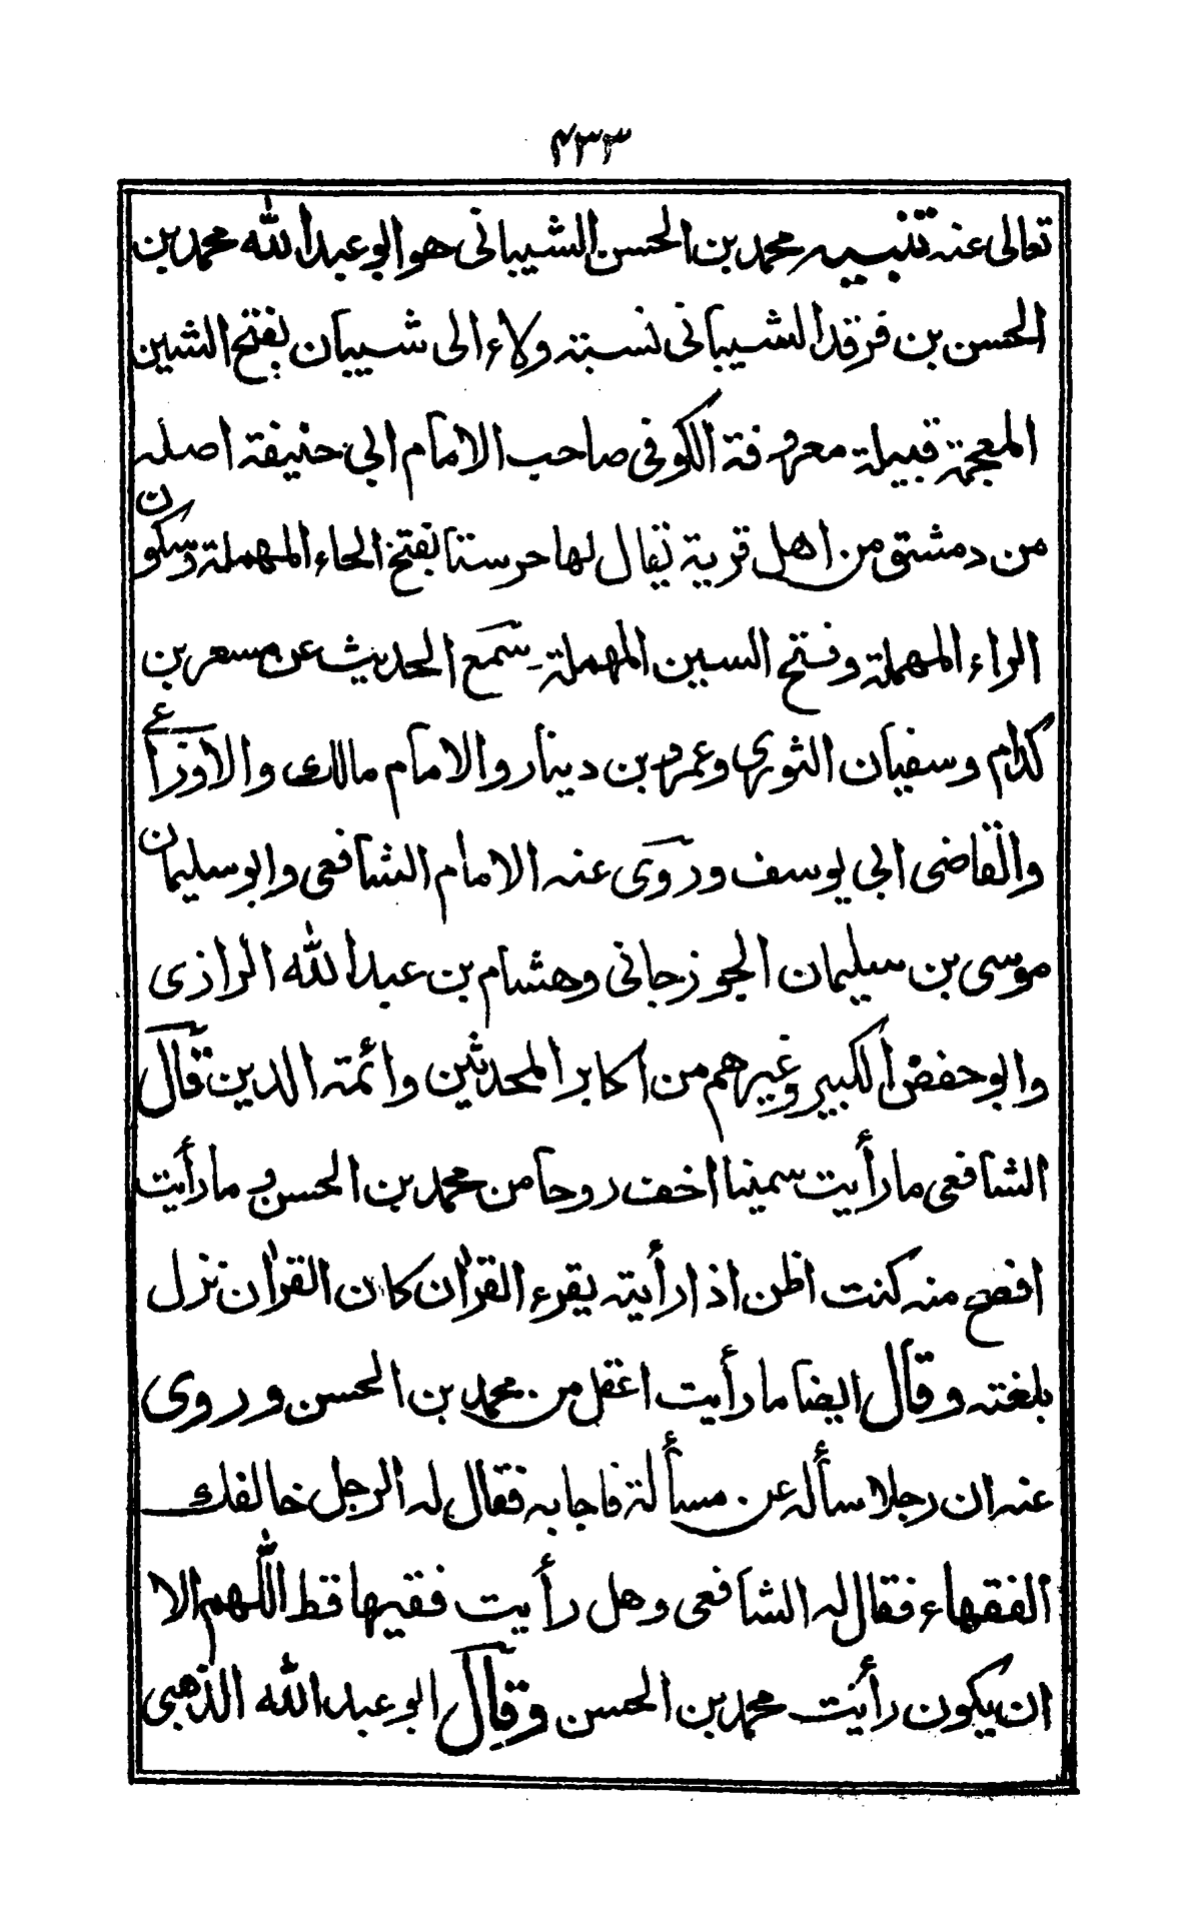 ٤٣٣
تعالى عنه تنبيه محمد بن الحسن الشيبانى هو ابو عبد الله محمد بن
الحسن بن فرقد الشيبانى نسبته ولاء الى شيبان بفتح الشين
المعجمة قبيلة معروفة الكوفى صاحب الامام ابي حنيفة اصله
من دمشق من اهل قرية يقال لها حرستا بفتح الحاء المهملة وسكون
الراء المهملة وفتح السين المهملة سمع الحديث عن مسعر بن
كدام وسفيان الثورى وعمرو بن دينار والامام مالك والاوزاعے
والقاضى ابي يوسف وروى عنه الامام الشافعى وابو سليمان
موسى بن سليمان الجوزجانى وهشام بن عبد الله الرازى
وابو حفص الكبير وغيرهم من اكابر المحدثين وائمة الدين قال
الشافعى ما رأيت سمينا اخف روحا من محمد بن الحسن و ما رأيت
افصح منه كنت اظن اذا رأيته يقرء القرآن كان القرآن نزل
بلغته وقال ايضا ما رأيت اعقل من محمد بن الحسن وروى
عنه ان رجلا سأله عن مسألة فاجابه فقال له الرجل خالفك
الفقهاء فقال له الشافعى وهل رأيت فقيها قط اللّهم الا
ان يكون رأيت محمد بن الحسن وقال ابو عبد الله الذهبى